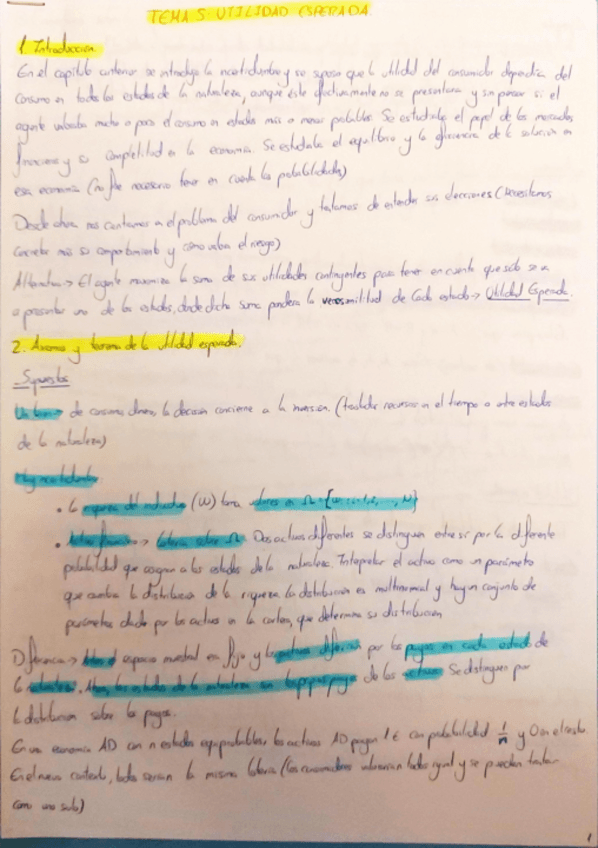 TEMA 5 UTILIDAD ESPERADA.
1. Introducción.
En el capítulo anterior se introdujo la incertidumbre y se supuso que la utilidad del consumidor dependía del
consumo en todos los estados de la naturaleza, aunque éste efectivamente no se presentara y sin pensar si el
agente valoraba mucho o poco el consumo en estados más o menos probables. Se estudiaba el papel de los mercados
financieros y su completitud en la economía. Se estudiaba el equilibrio y la eficiencia de la solución en
esa economía (no fue necesario tener en cuenta las probabilidades)
Desde ahora nos centramos en el problema del consumidor y tratamos de entender sus elecciones (necesitamos
concretar más su comportamiento y cómo valora el riesgo)
Alternativa → El agente maximiza la suma de sus utilidades contingentes para tener en cuenta que sólo se va
a presentar uno de los estados, donde dicha suma pondera la verosimilitud de cada estado → Utilidad Esperada.
2. Axiomas y teorema de la utilidad esperada.
Supuestos
Un bien → de consumo dinero, la decisión concierne a la inversión. (trasladar recursos en el tiempo o entre estados
de la naturaleza)
Hay incertidumbre
• La riqueza del individuo (W) toma valores en Ω = {w : = 1, 2, ..., N}
• Activo financiero → lotería sobre Ω. Dos activos diferentes se distinguen entre sí por la diferente
probabilidad que asignan a los estados de la naturaleza. Interpretar el activo como un parámetro
que cambia la distribución de la riqueza. La distribución es multinomial y hay un conjunto de
parámetros dado por los activos en la cartera, que determina su distribución
Diferencia → Antes el espacio muestral era fijo y los activos diferían por los pagos en cada estado de
la naturaleza. Ahora, los estados de la naturaleza son los propios pagos de los activos. Se distinguen por
la distribución sobre los pagos.
En una economía AD con n estados equiprobables los activos AD pagan 1 € con probabilidad 1/n y 0 en el resto.
En el nuevo contexto, todos serían la misma lotería (los consumidores valorarían todos igual y se pueden tratar
como uno solo)
1